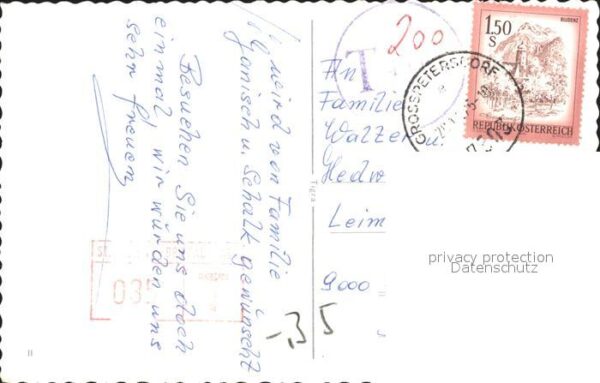 wird von Familie
Janisch u. Schalk gewünscht
Besuchen Sie uns doch
einmal, wir würden uns
sehr freuen
Tigra
T
200
An
Familie
Hedw
Leim
9000
-,35
035
1.50
S
BLUDENZ
REPUBLIK ÖSTERREICH
GROSSPETERSDORF
privacy protection
Datenschutz